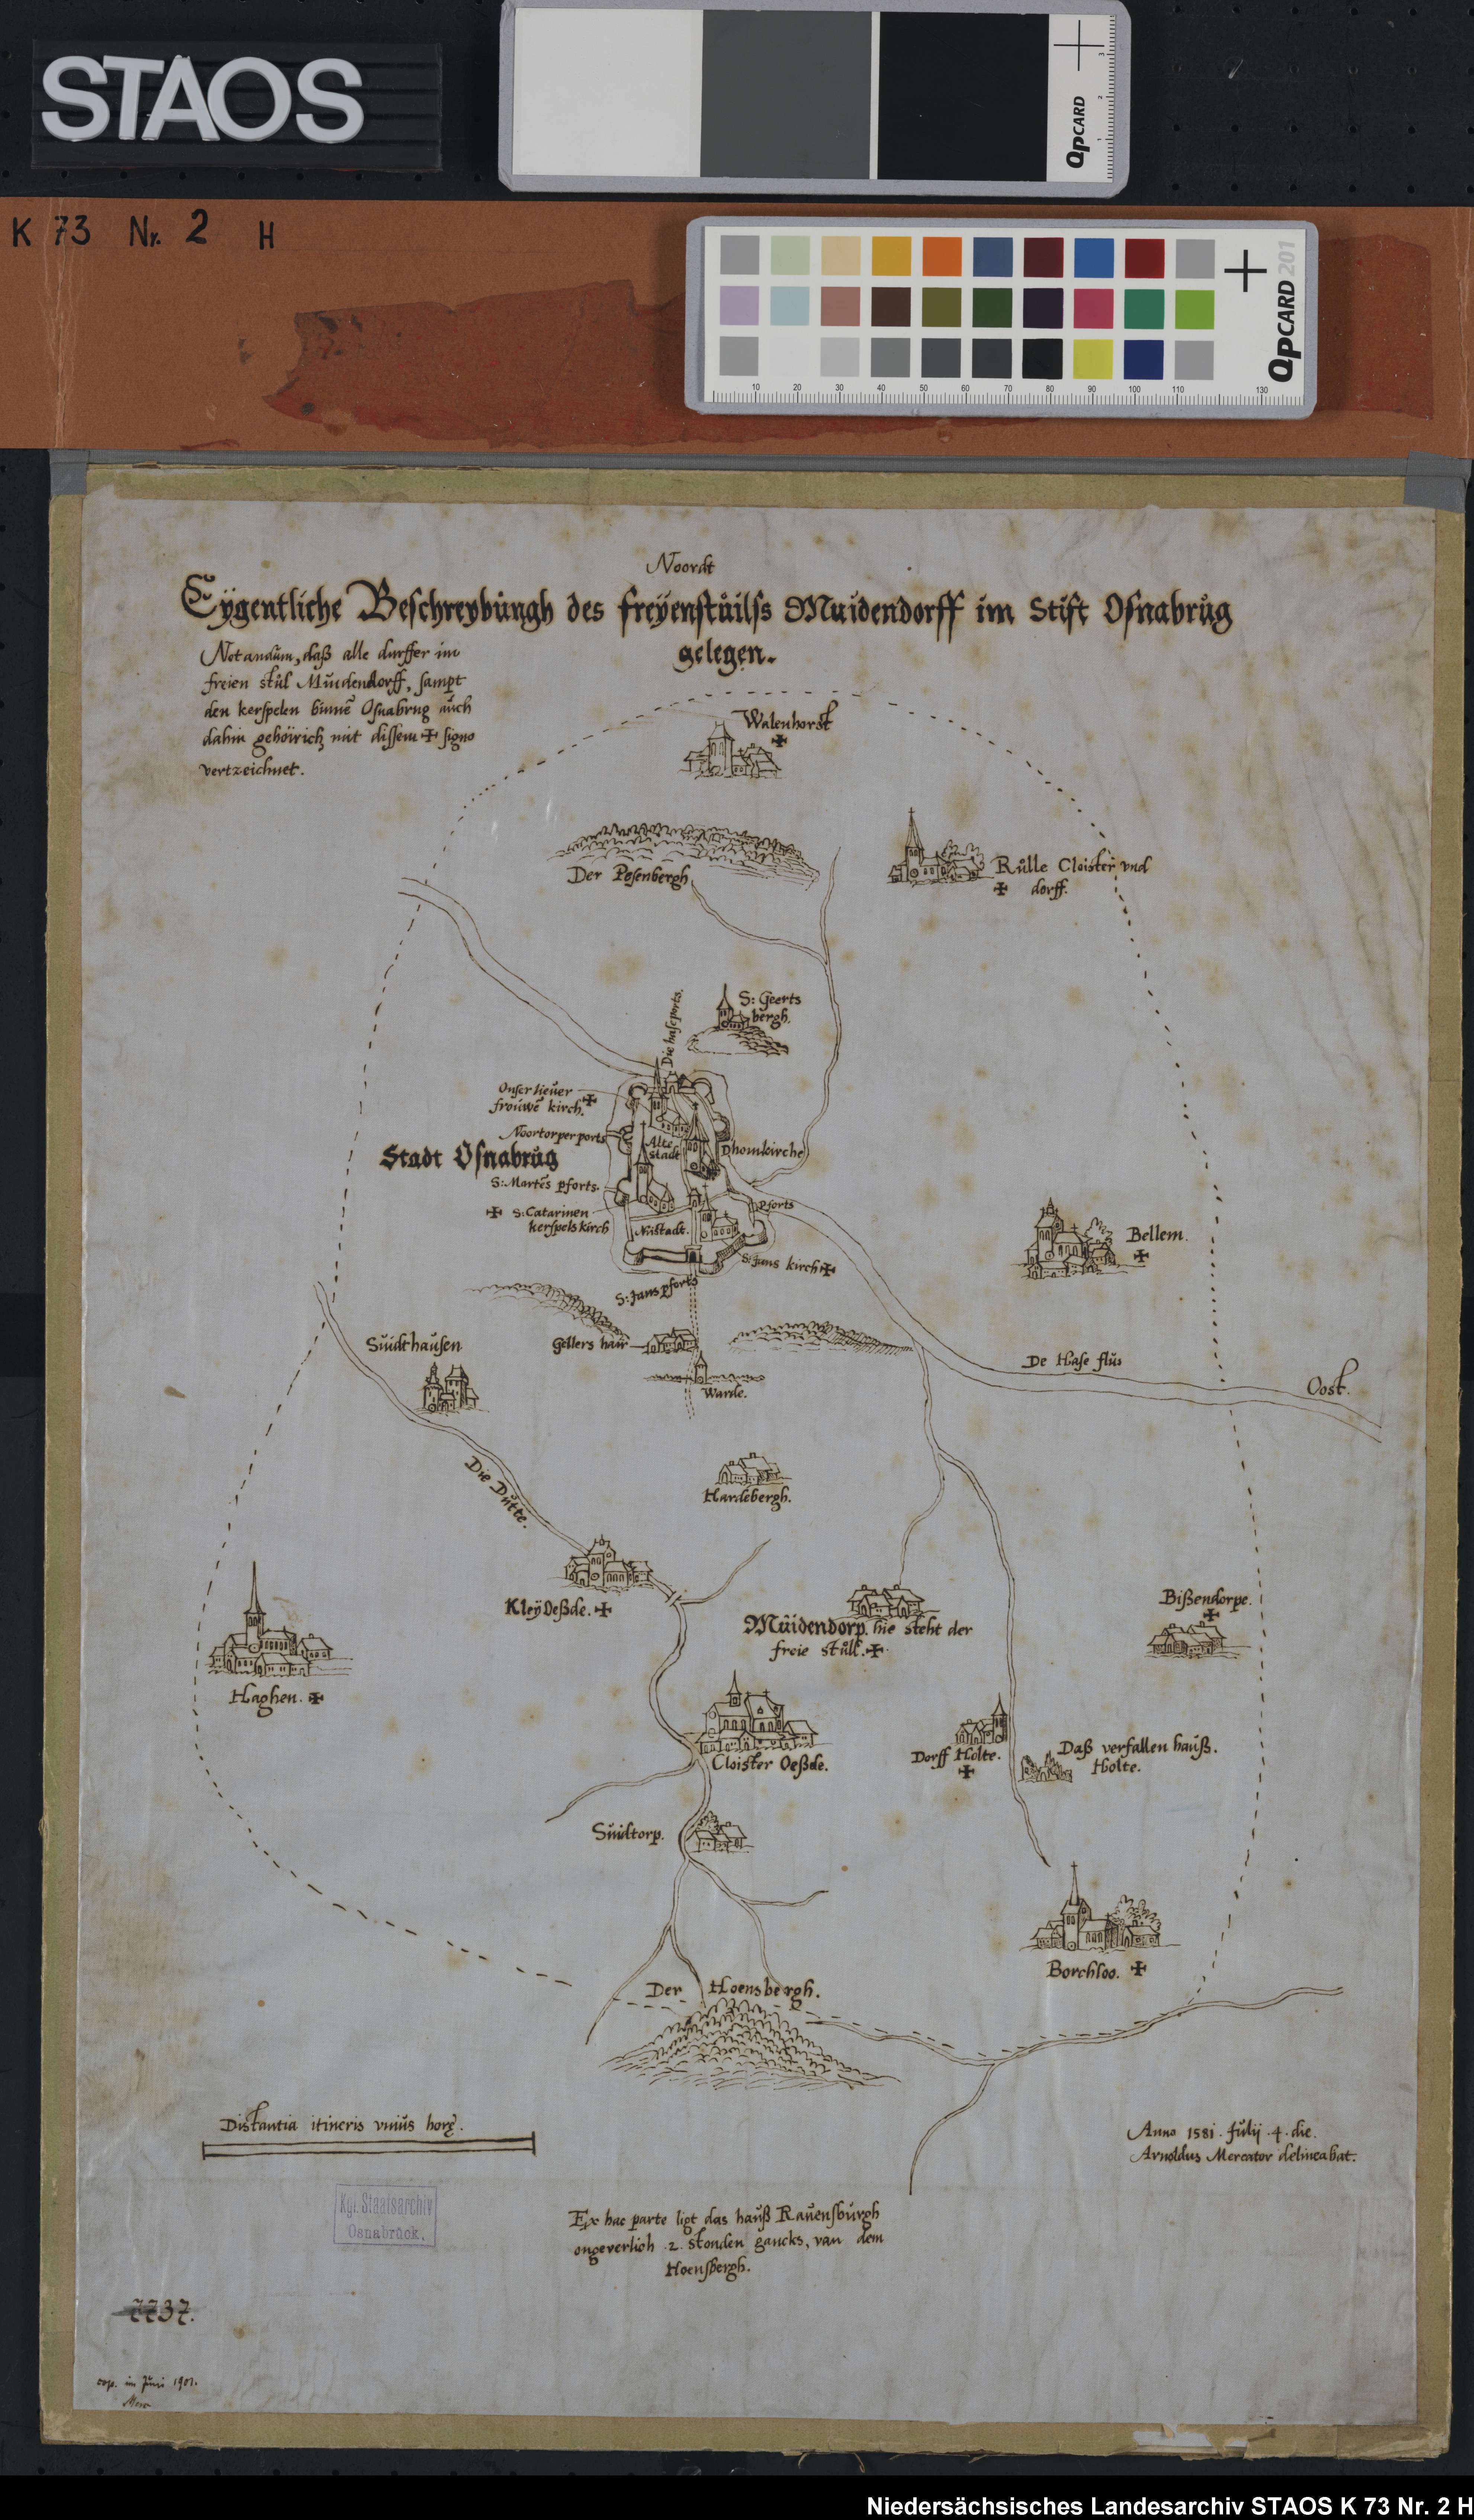 STAOS
QPCARD
K 73 Nr. 2 H
QPCARD 201
10 20 30 40 50 60 70 80 90 100 110 130
Noordt
Eÿgentliche Beschreybůngh des freÿenstůilss Muidendorff im Stift Osnabrůg
gelegen.
Notandům, daß alle durffer im
freien stůl Můdendorff, sampt
den kerspelen binnē Osnabrug aůch
dahin gehöirich mit dissem ✠ signo
vertzeichnet.
Walenhorst
✠
Der Pesenbergh
Růlle Cloister vnd
✠ dorff.
S: Geerts
bergh.
Die haseports.
Onser lieuer
frouwē kirch. ✠
Noortorper ports
Alte
stadt
Dhomkirche
Stadt Osnabrůg
S: Martēs pforts.
✠ S: Catarinen
kerspels kirch
Nůstadt.
pforts
S: Jans kirch ✠
S: Jans pforts
Bellem.
✠
Suidthaůsen
Gellers haůs
Warde.
De Hase flůs
Oost.
Die Dŭtte.
Hardebergh.
Kleÿ Oeßde. ✠
Můidendorp. hie steht der
freie stůll. ✠
Bißendorpe.
✠
Haghen. ✠
Cloister Oeßde.
Dorff Holte.
✠
Daß verfallen haůß.
Holte.
Sůidtorp.
Borchloo. ✠
Der Hoensbergh.
Distantia itineris vniůs horę.
Anno 1581. Julij .4. die.
Arnoldus Mercator delineabat.
Kgl. Staatsarchiv
Osnabrück.
Ex hac parte ligt das haůß Raůensbůrgh
ongeverlich .2. stonden gancks, van dem
Hoensbergh.
cop. im Juni 1901.
Niedersächsisches Landesarchiv STAOS K 73 Nr. 2 H